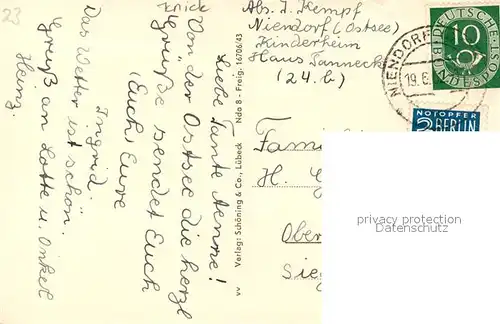 23
knick
Liebe Tante Aenne!
Von der Ostsee die herzl
Grüße sendet Euch
(Euch) Eure
Ingrid.
Das Wetter ist schön.
Gruß an Lotte u. Onkel
Heinz.
W Verlag: Schöning & Co., Lübeck Nds 8 - Freig. 16/06/43
Abs. I. Kempf
Niendorf (Ostsee)
Kinderheim
Haus Tanneck
(24.b)
DEUTSCHE BUNDESPOST
10
NIENDORF
19.6.
NOTOPFER
2 BERLIN
Fam
H. G
Ober
Sieg
privacy protection
copyright